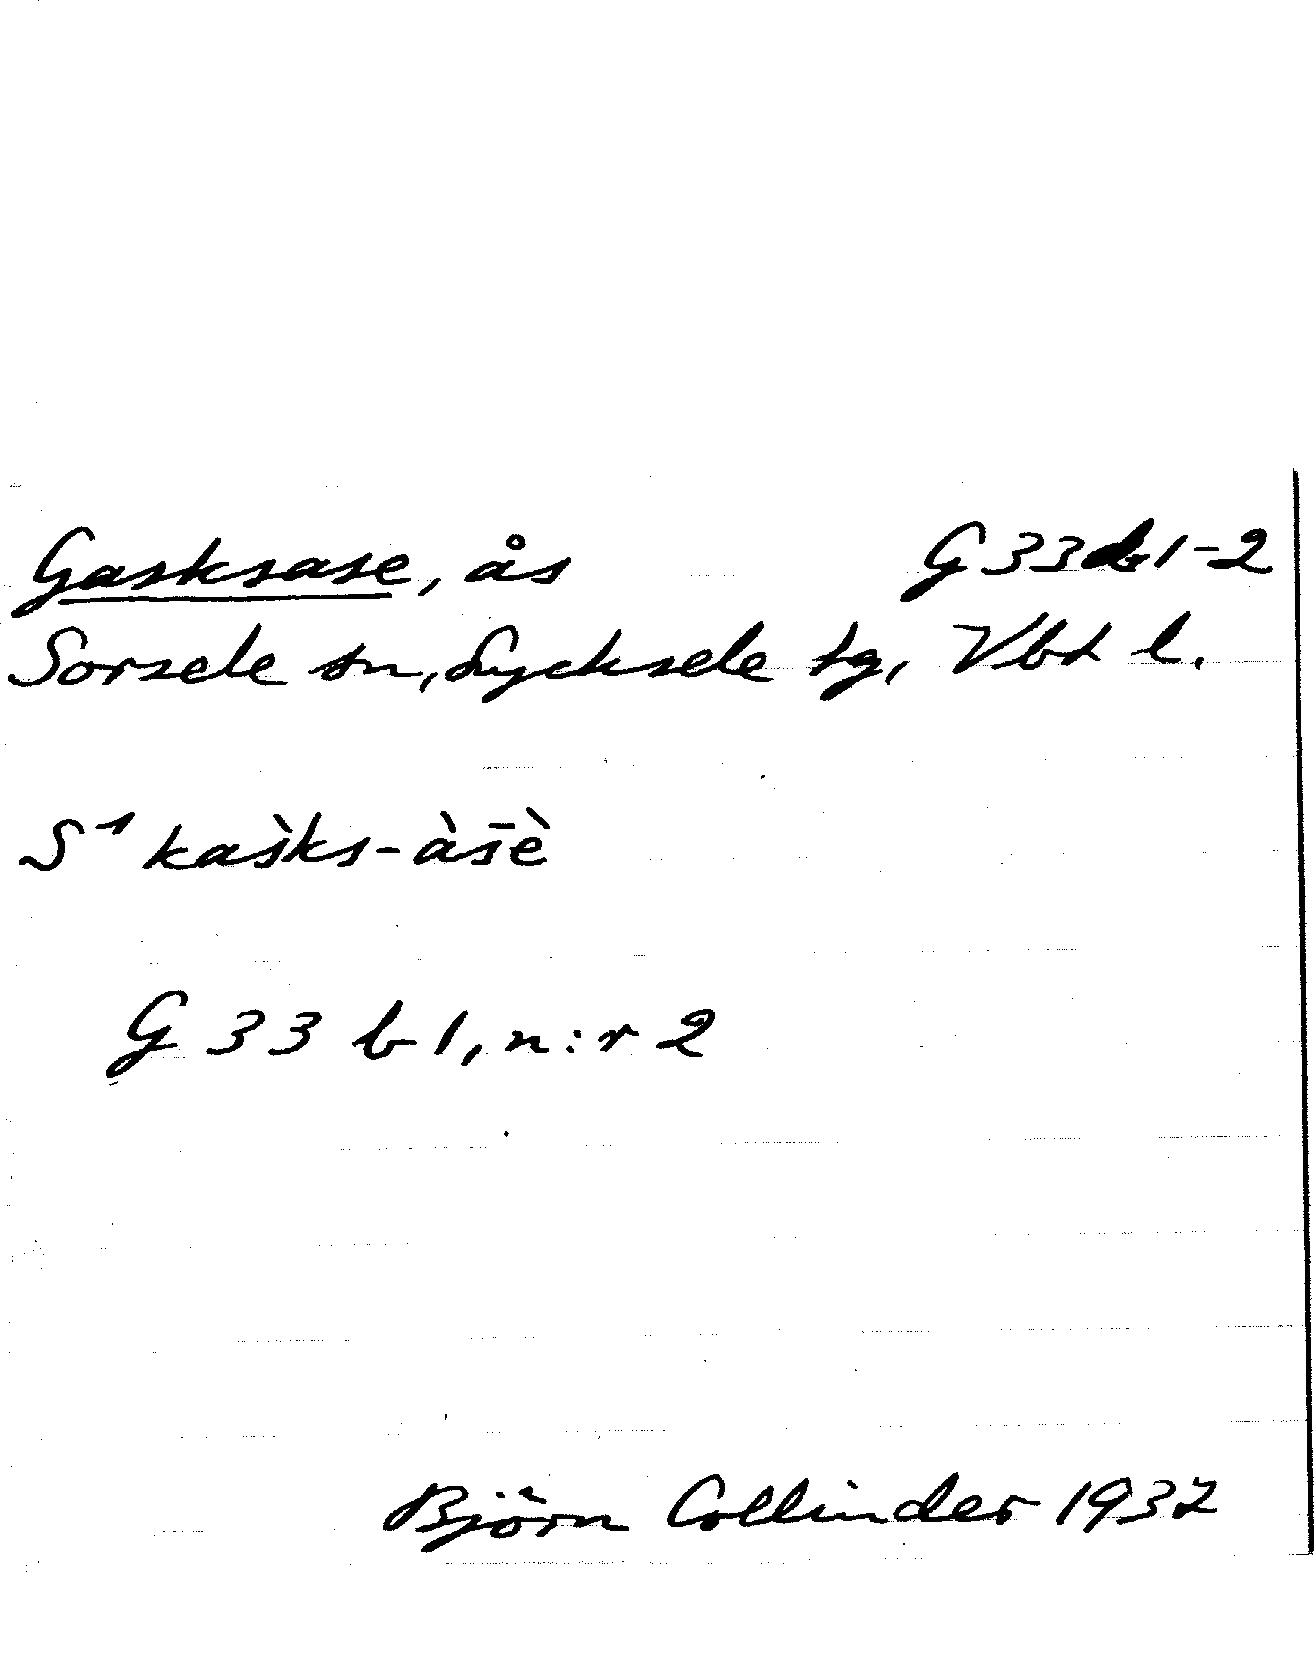 Gasksase, ås G 33 b 1-2
Sorsele sn, Lycksele tg, Vbt l.
S¹ kas̀ks-às̄è
G 33 b 1, n:r 2
Björn Collinder 1937